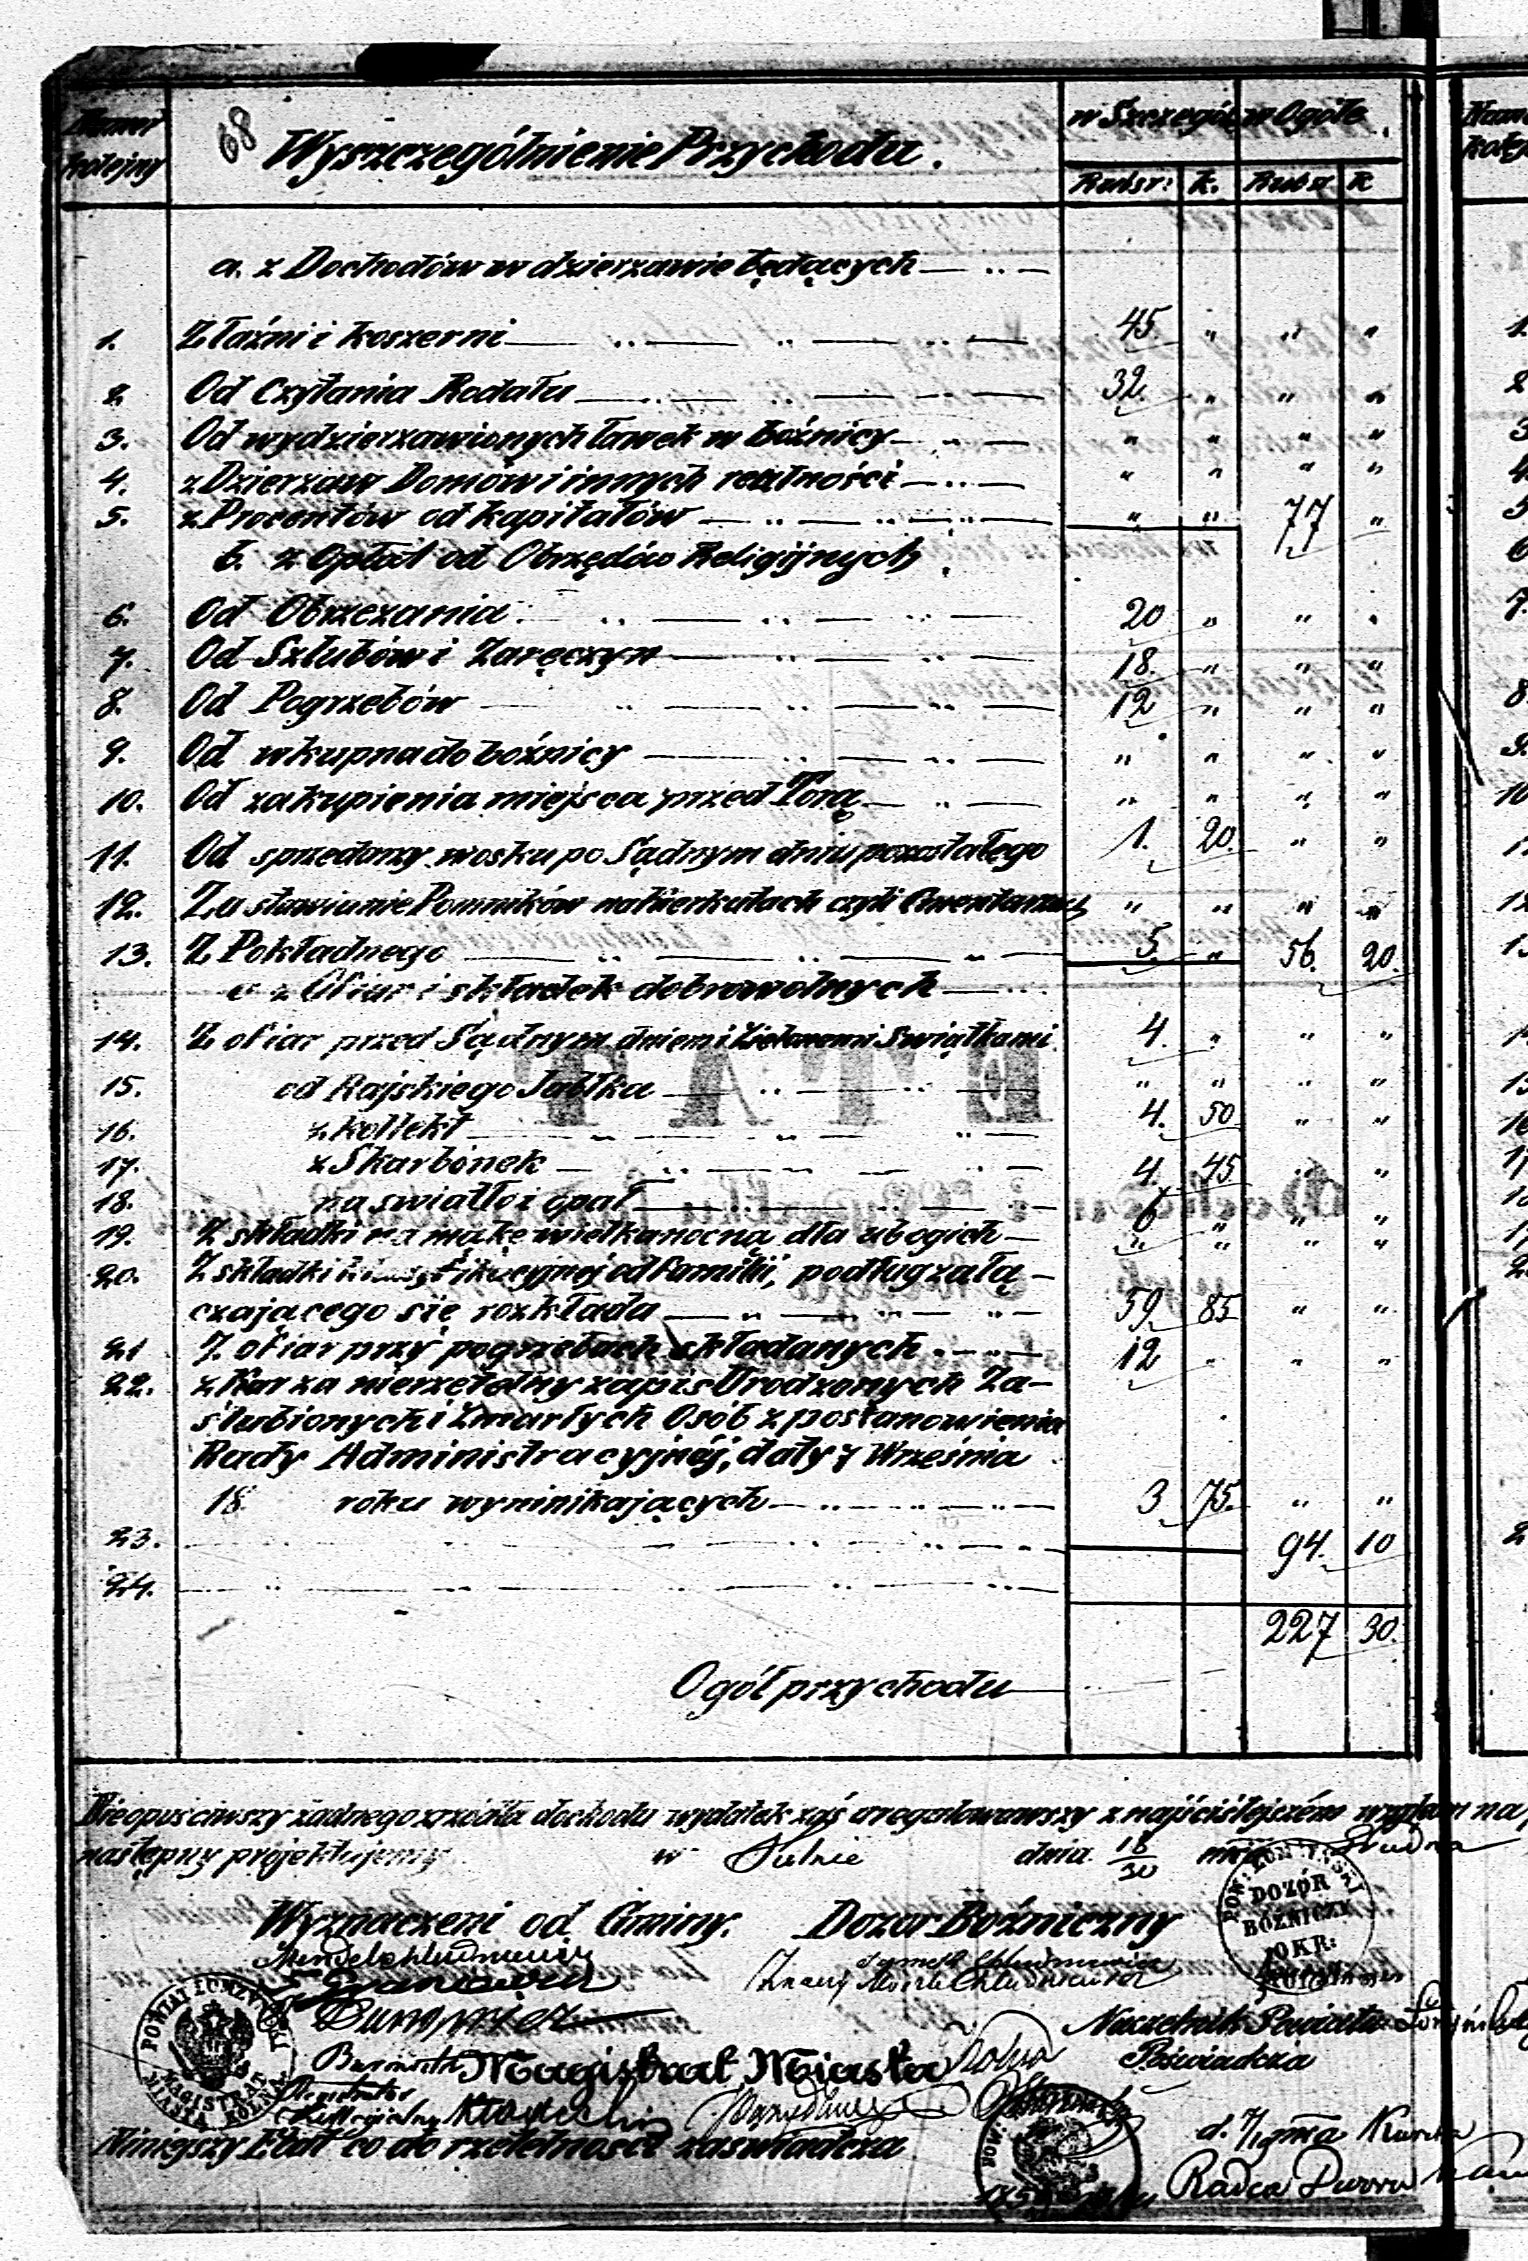 Numer kolejny
68
Wyszczególnienie Przychodu.
w Szczegól. w Ogóle
Rubsr: k. Rubsr k
a. z Dochodów w dzierzawie będących
1. Z łaźni i koszerni 45. " " "
2 Od Czytania Rodału 32. " " "
3. Od wydzierzawionych ławek w bóźnicy " " " "
4. z Dzierzaw Domów i innych realności " " " "
5. z Procentów od kapitałów " " 77 "
b. z Opłat od Obrzędów Religijnych
6. Od Obrzezania 20 " " "
7. Od Szlubów i Zaręczyn 18. " " "
8. Od Pogrzebów 12 " " "
9. Od wkupna do bóźnicy " " " "
10. Od zakupienia miejsca przed Torą " " " "
11. Od sprzedarzy wosku po Sądnym dniu pozostałego 1. 20. " "
12. Za stawianie Pomników na Kierkutach czyli Cmentarzu " " " "
13. Z Pokładnego 5. " 56. 20.
c z Ofiar i składek dobrowolnych
14. Z ofiar przed Sądnym dniem i Zielonemi Swiątkami 4. " " "
15. od Rajskiego Jabłka " " " "
16. z kollekt 4. 50 " "
17. z Skarbónek 4. 45 " "
18. na swiatło i opał 6 " " "
19. Z składki na mąkę wielkanocną dla ubogich " " " "
20. Z składki od Familii, podług załą-
czającego się rozkładu 59. 85 " "
21 Z ofiar przy pogrzebach składanych 12 " " "
22. z Kar za nierzetelny zapis Urodzonych Za-
ślubionych i Zmarłych Osób z postanowienia
Rady Administracyjnéj, daty 7 Września
18 roku wyninikających 3 75. " "
23. 94. 10
24.
227 30.
Ogół przychodu
Nieopuściwszy żadnego zrzódła dochodu wydatek zaś uregulowawszy z najściślejszém względem na
następny projektujemy w dnia 18/30 Grudnia
Wyznaczeni od Gminy. Dozor Bóźniczny
DOZÓR
BÓŻNICZY
OKR:
POWIAT ŁOMZYŃSKI
MAGISTRAT
MIASTA KOLNA
Naczelnik Powiatu
Poświadcza
Magistrat Miasta Kolna
Niniejszy Etat co do rzetelności zaswiadcza
Radca Dworu